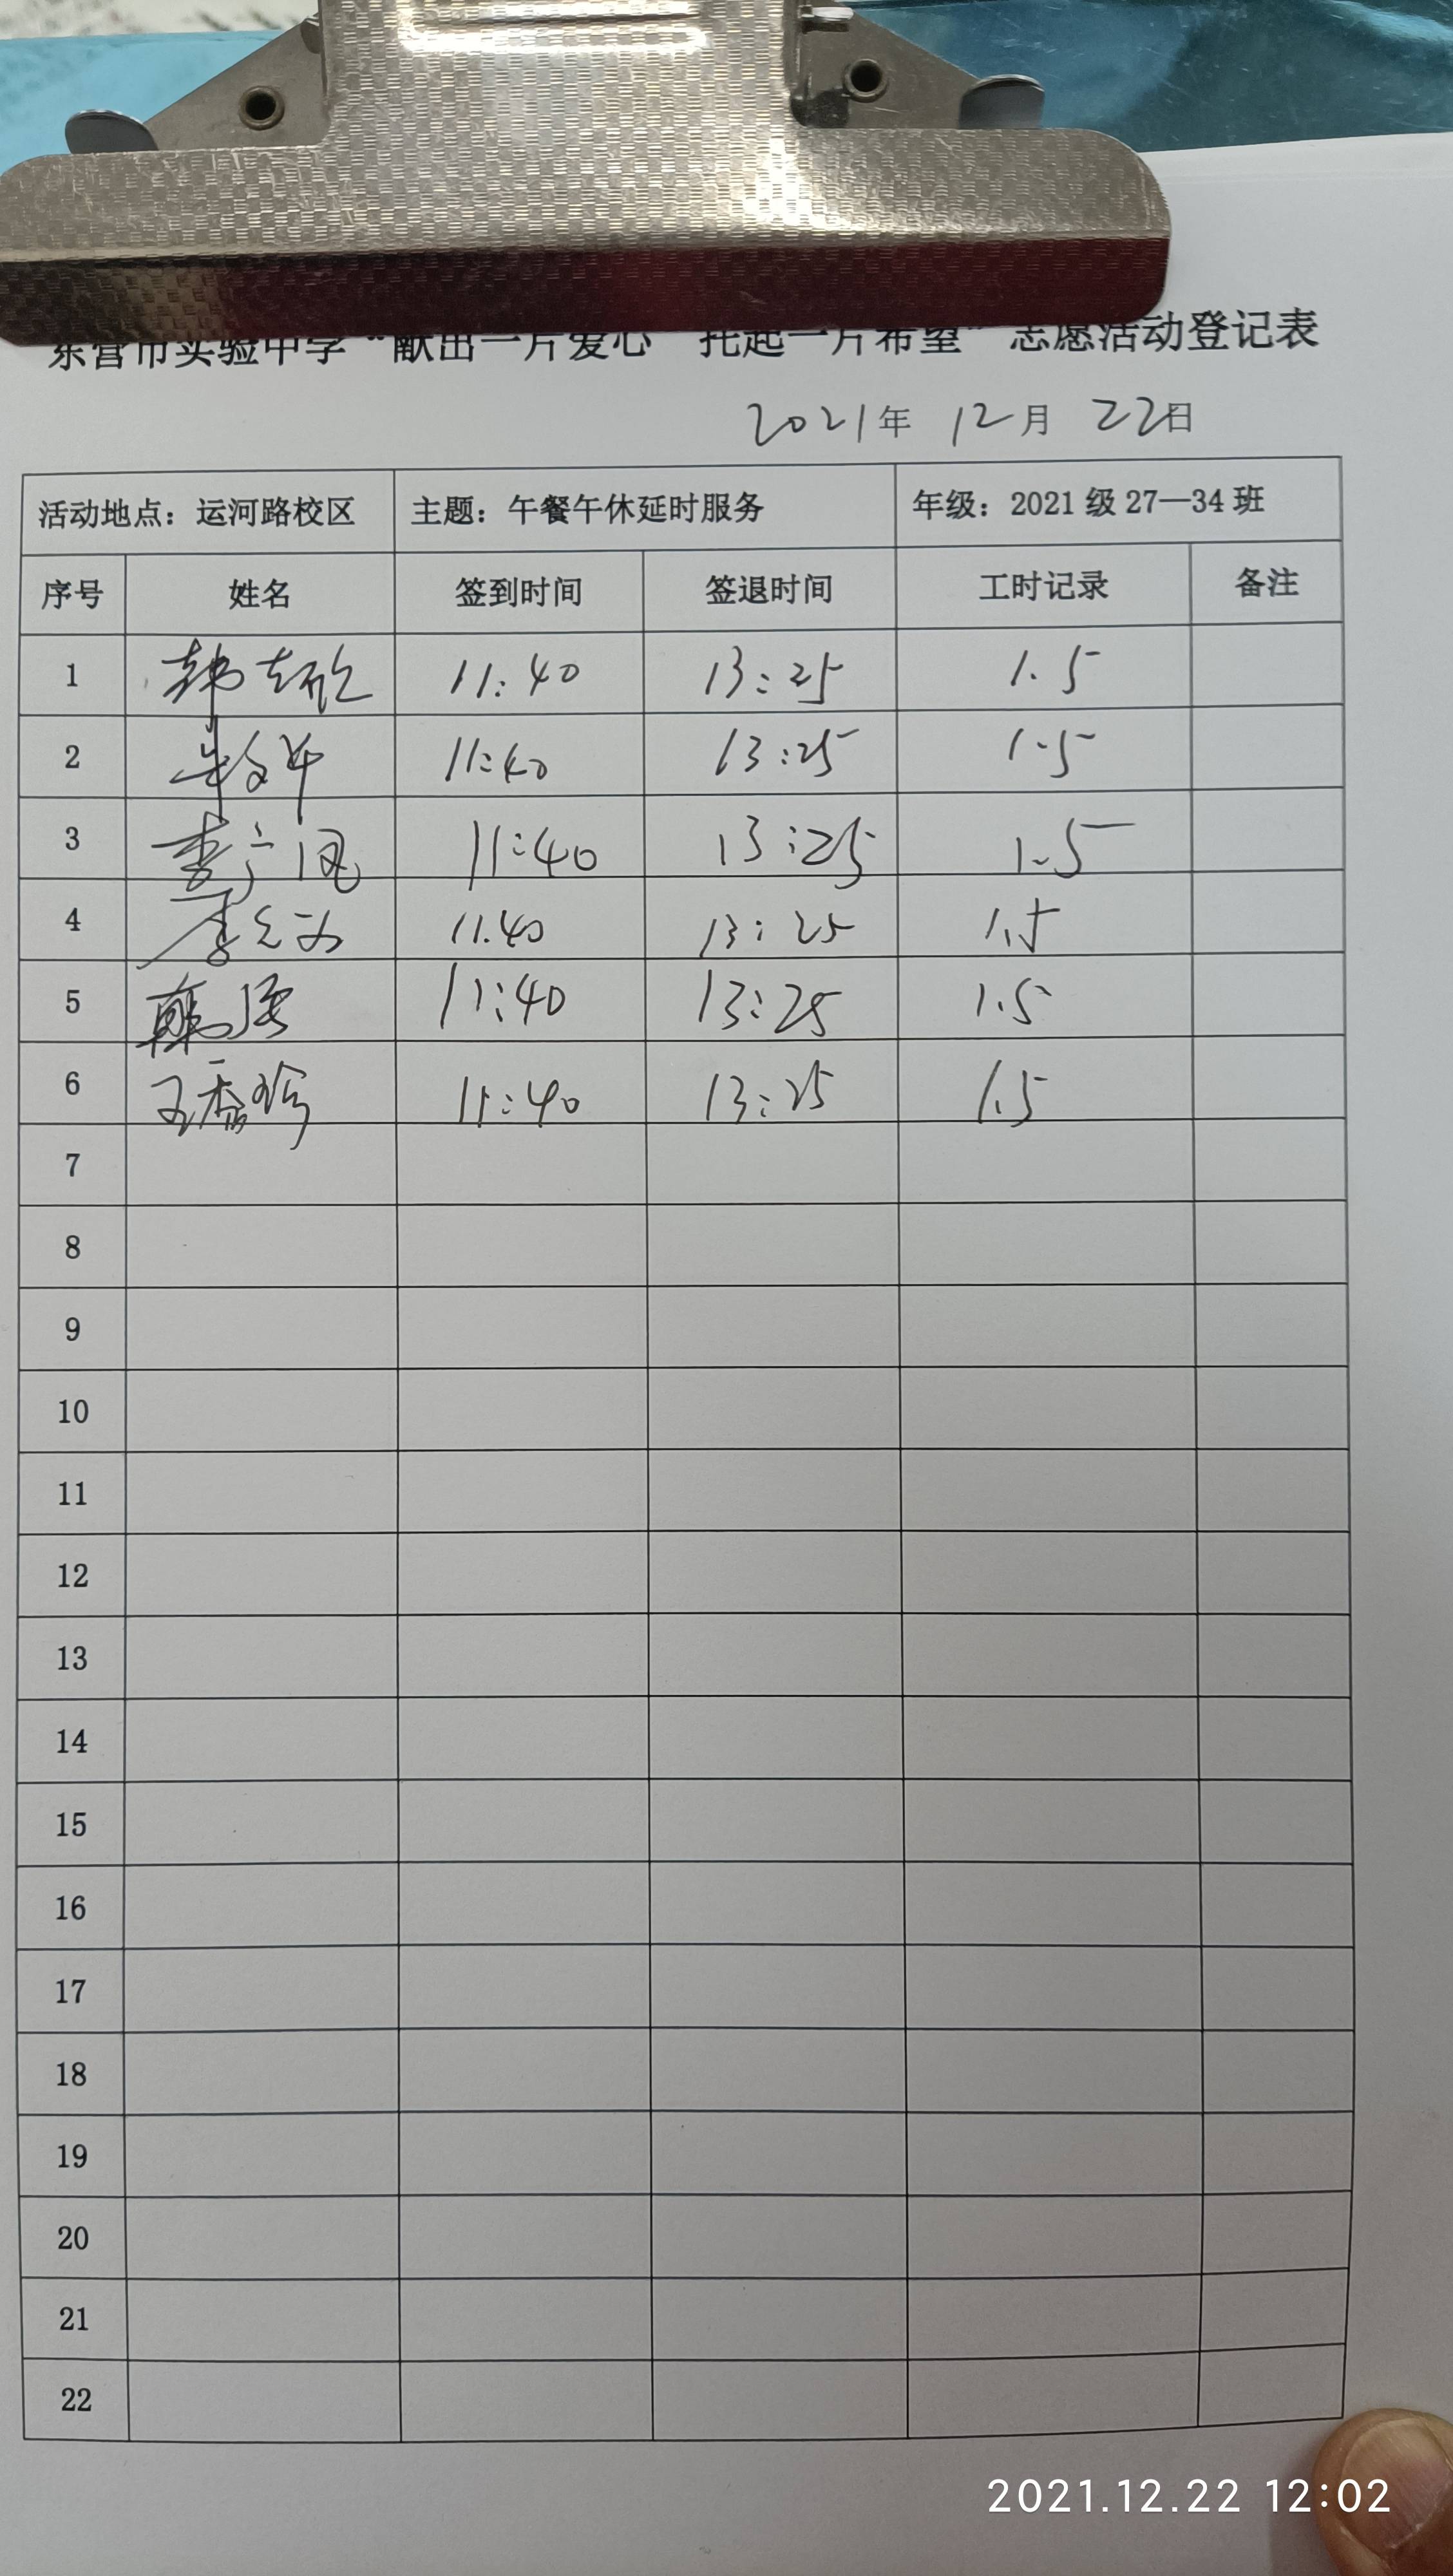 东营市实验中学“献出一片爱心 托起一片希望”志愿活动登记表
2021年 12月 22日
活动地点：运河路校区 主题：午餐午休延时服务 年级：2021级27—34班
序号 姓名 签到时间 签退时间 工时记录 备注
1 韩 11:40 13:25 1.5
2 11:40 13:25 1.5
3 李广凤 11:40 13:25 1.5
4 李 11.40 13:25 1.5
5 韩 11:40 13:25 1.5
6 王春珍 11:40 13:25 1.5
7
8
9
10
11
12
13
14
15
16
17
18
19
20
21
22
2021.12.22 12:02